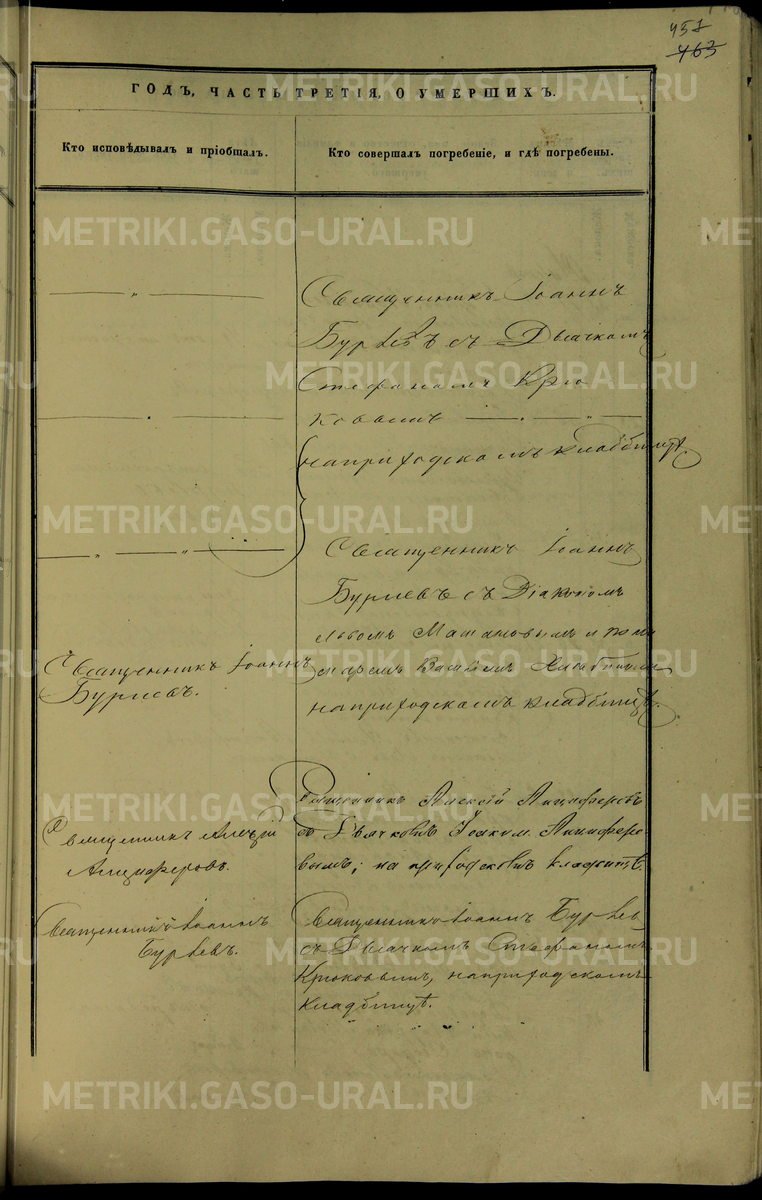 457
463
ГОДЪ, ЧАСТЬ ТРЕТІЯ, О УМЕРШИХЪ.
Кто исповѣдывалъ и пріобщалъ.
Кто совершалъ погребеніе, и гдѣ погребены.
Священникъ Іоаннъ
Бурлевъ съ Дьячкомъ
Стефаномъ Крю
ковымъ
на приходскомъ кладбищѣ.
Священникъ Іоаннъ
Бурлевъ съ Діакономъ
Священникъ Іоаннъ
Бурлевъ.
на приходскомъ кладбищѣ.
Священникъ Алексій
Анциферовъ.
Священникъ Алексій Анциферовъ
съ Дьячковъ Анциферо
вымъ; на приходскомъ кладбищѣ.
Священникъ Іоаннъ
Бурлевъ.
Священникъ Іоаннъ Бурлевъ
съ Дьячкомъ Стефаномъ
Крюковымъ, на приходскомъ
кладбищѣ.
METRIKI.GASO-URAL.RU